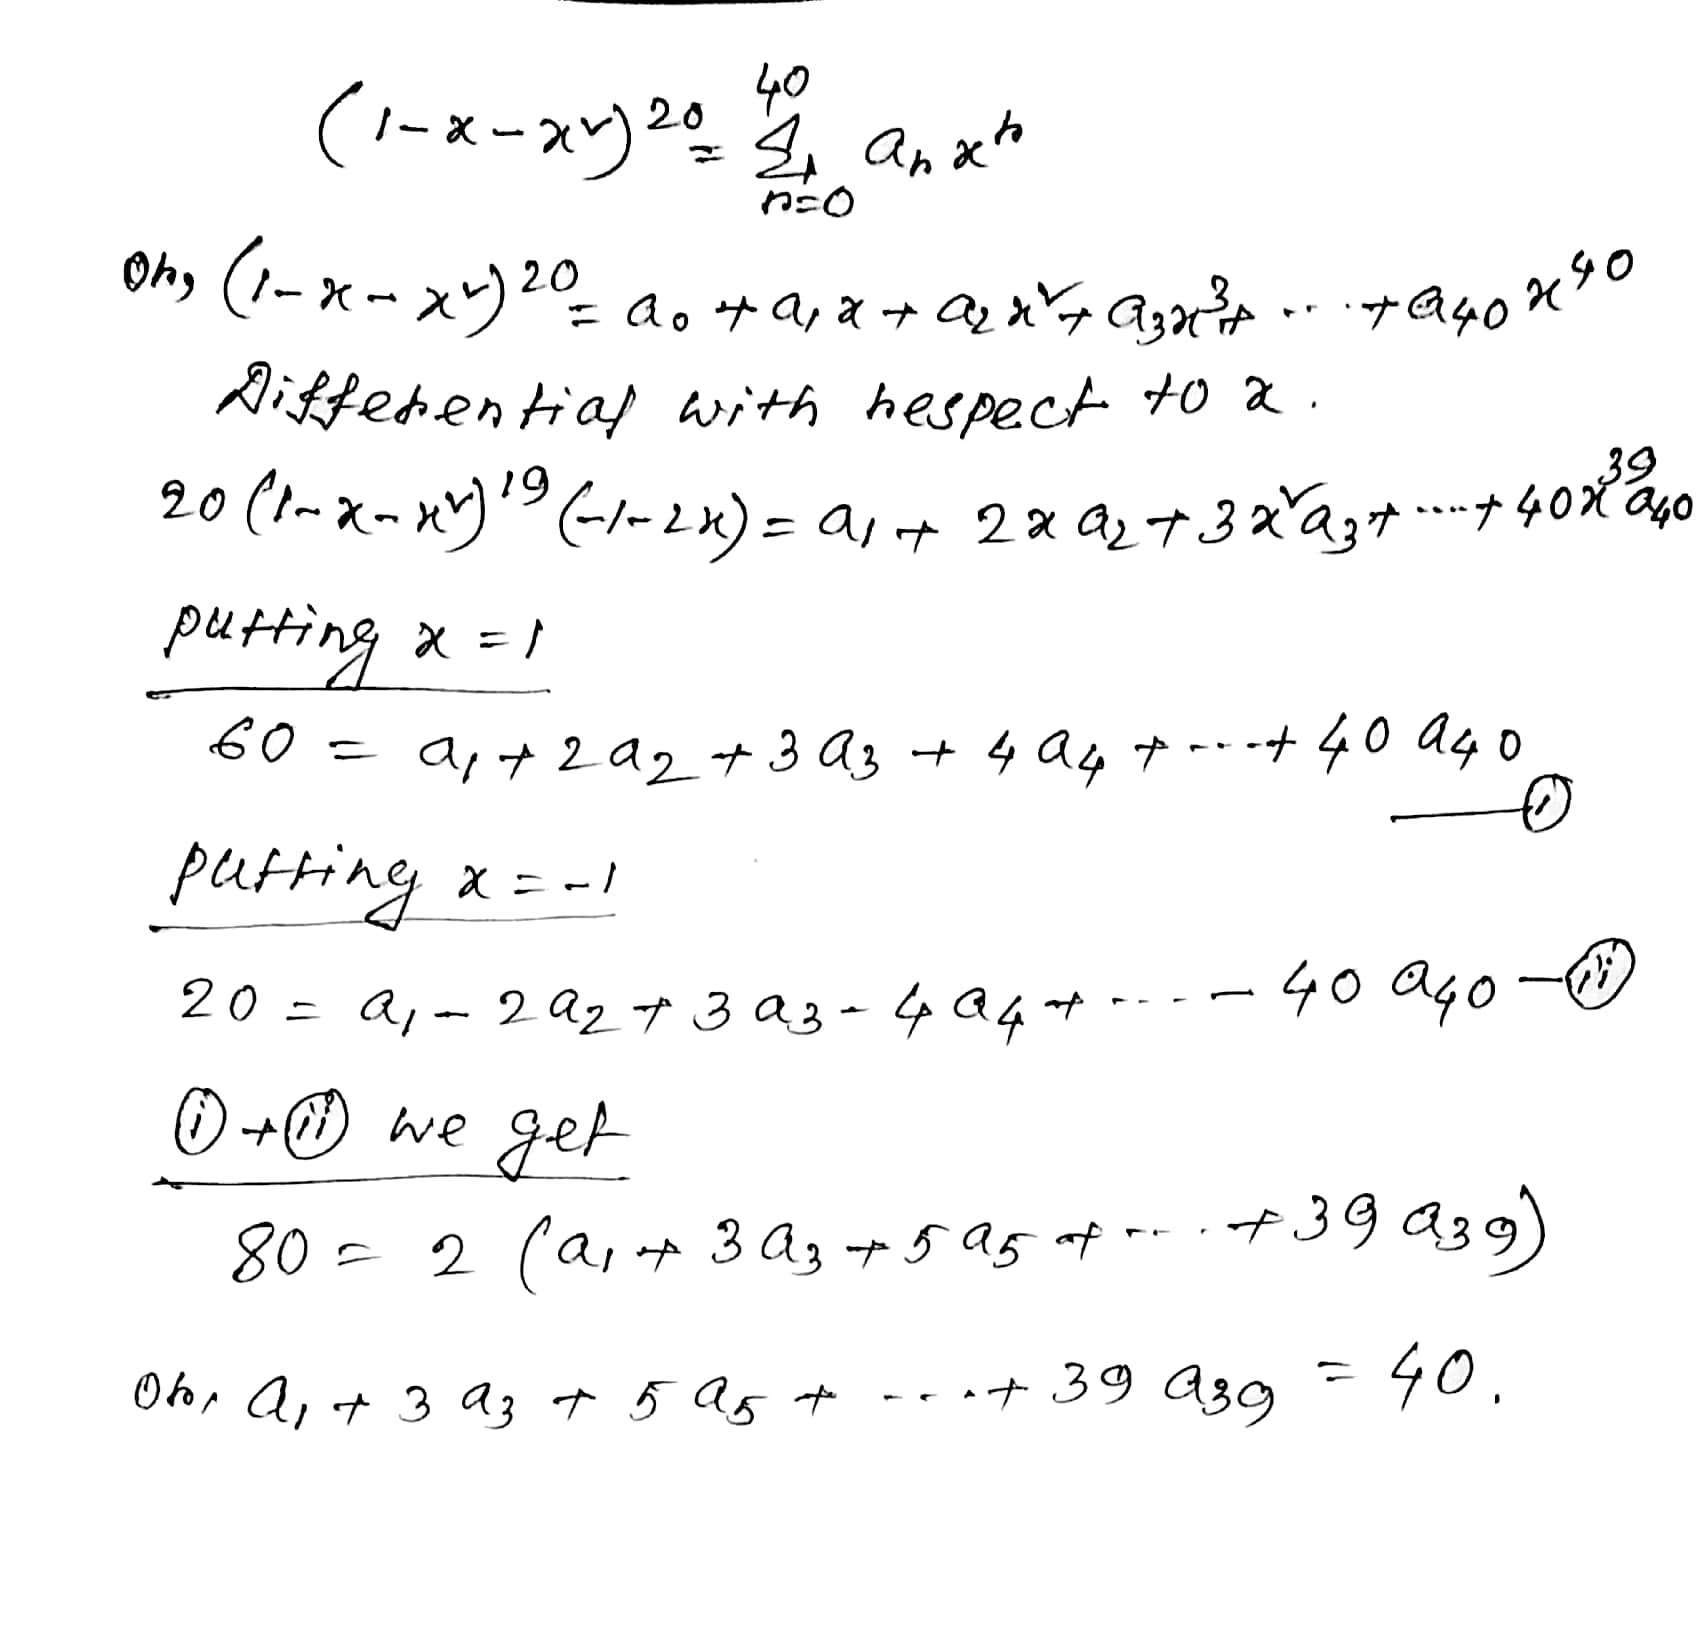 (1-x-x²)²⁰ = ⁴⁰Σₙ₌₀ aₙxⁿ
Or, (1-x-x²)²⁰ = a₀ + a₁x + a₂x² + a₃x³ + ... + a₄₀x⁴⁰
Differential with respect to x.
20(1-x-x²)¹⁹(-1-2x) = a₁ + 2xa₂ + 3x²a₃ + ..... + 40x³⁹a₄₀
putting x = 1
60 = a₁ + 2a₂ + 3a₃ + 4a₄ + ... + 40a₄₀ —(i)
putting x = -1
20 = a₁ - 2a₂ + 3a₃ - 4a₄ + ... - 40a₄₀ —(ii)
(i)+(ii) we get
80 = 2(a₁ + 3a₃ + 5a₅ + .... + 39a₃₉)
Or, a₁ + 3a₃ + 5a₅ + .... + 39a₃₉ = 40.